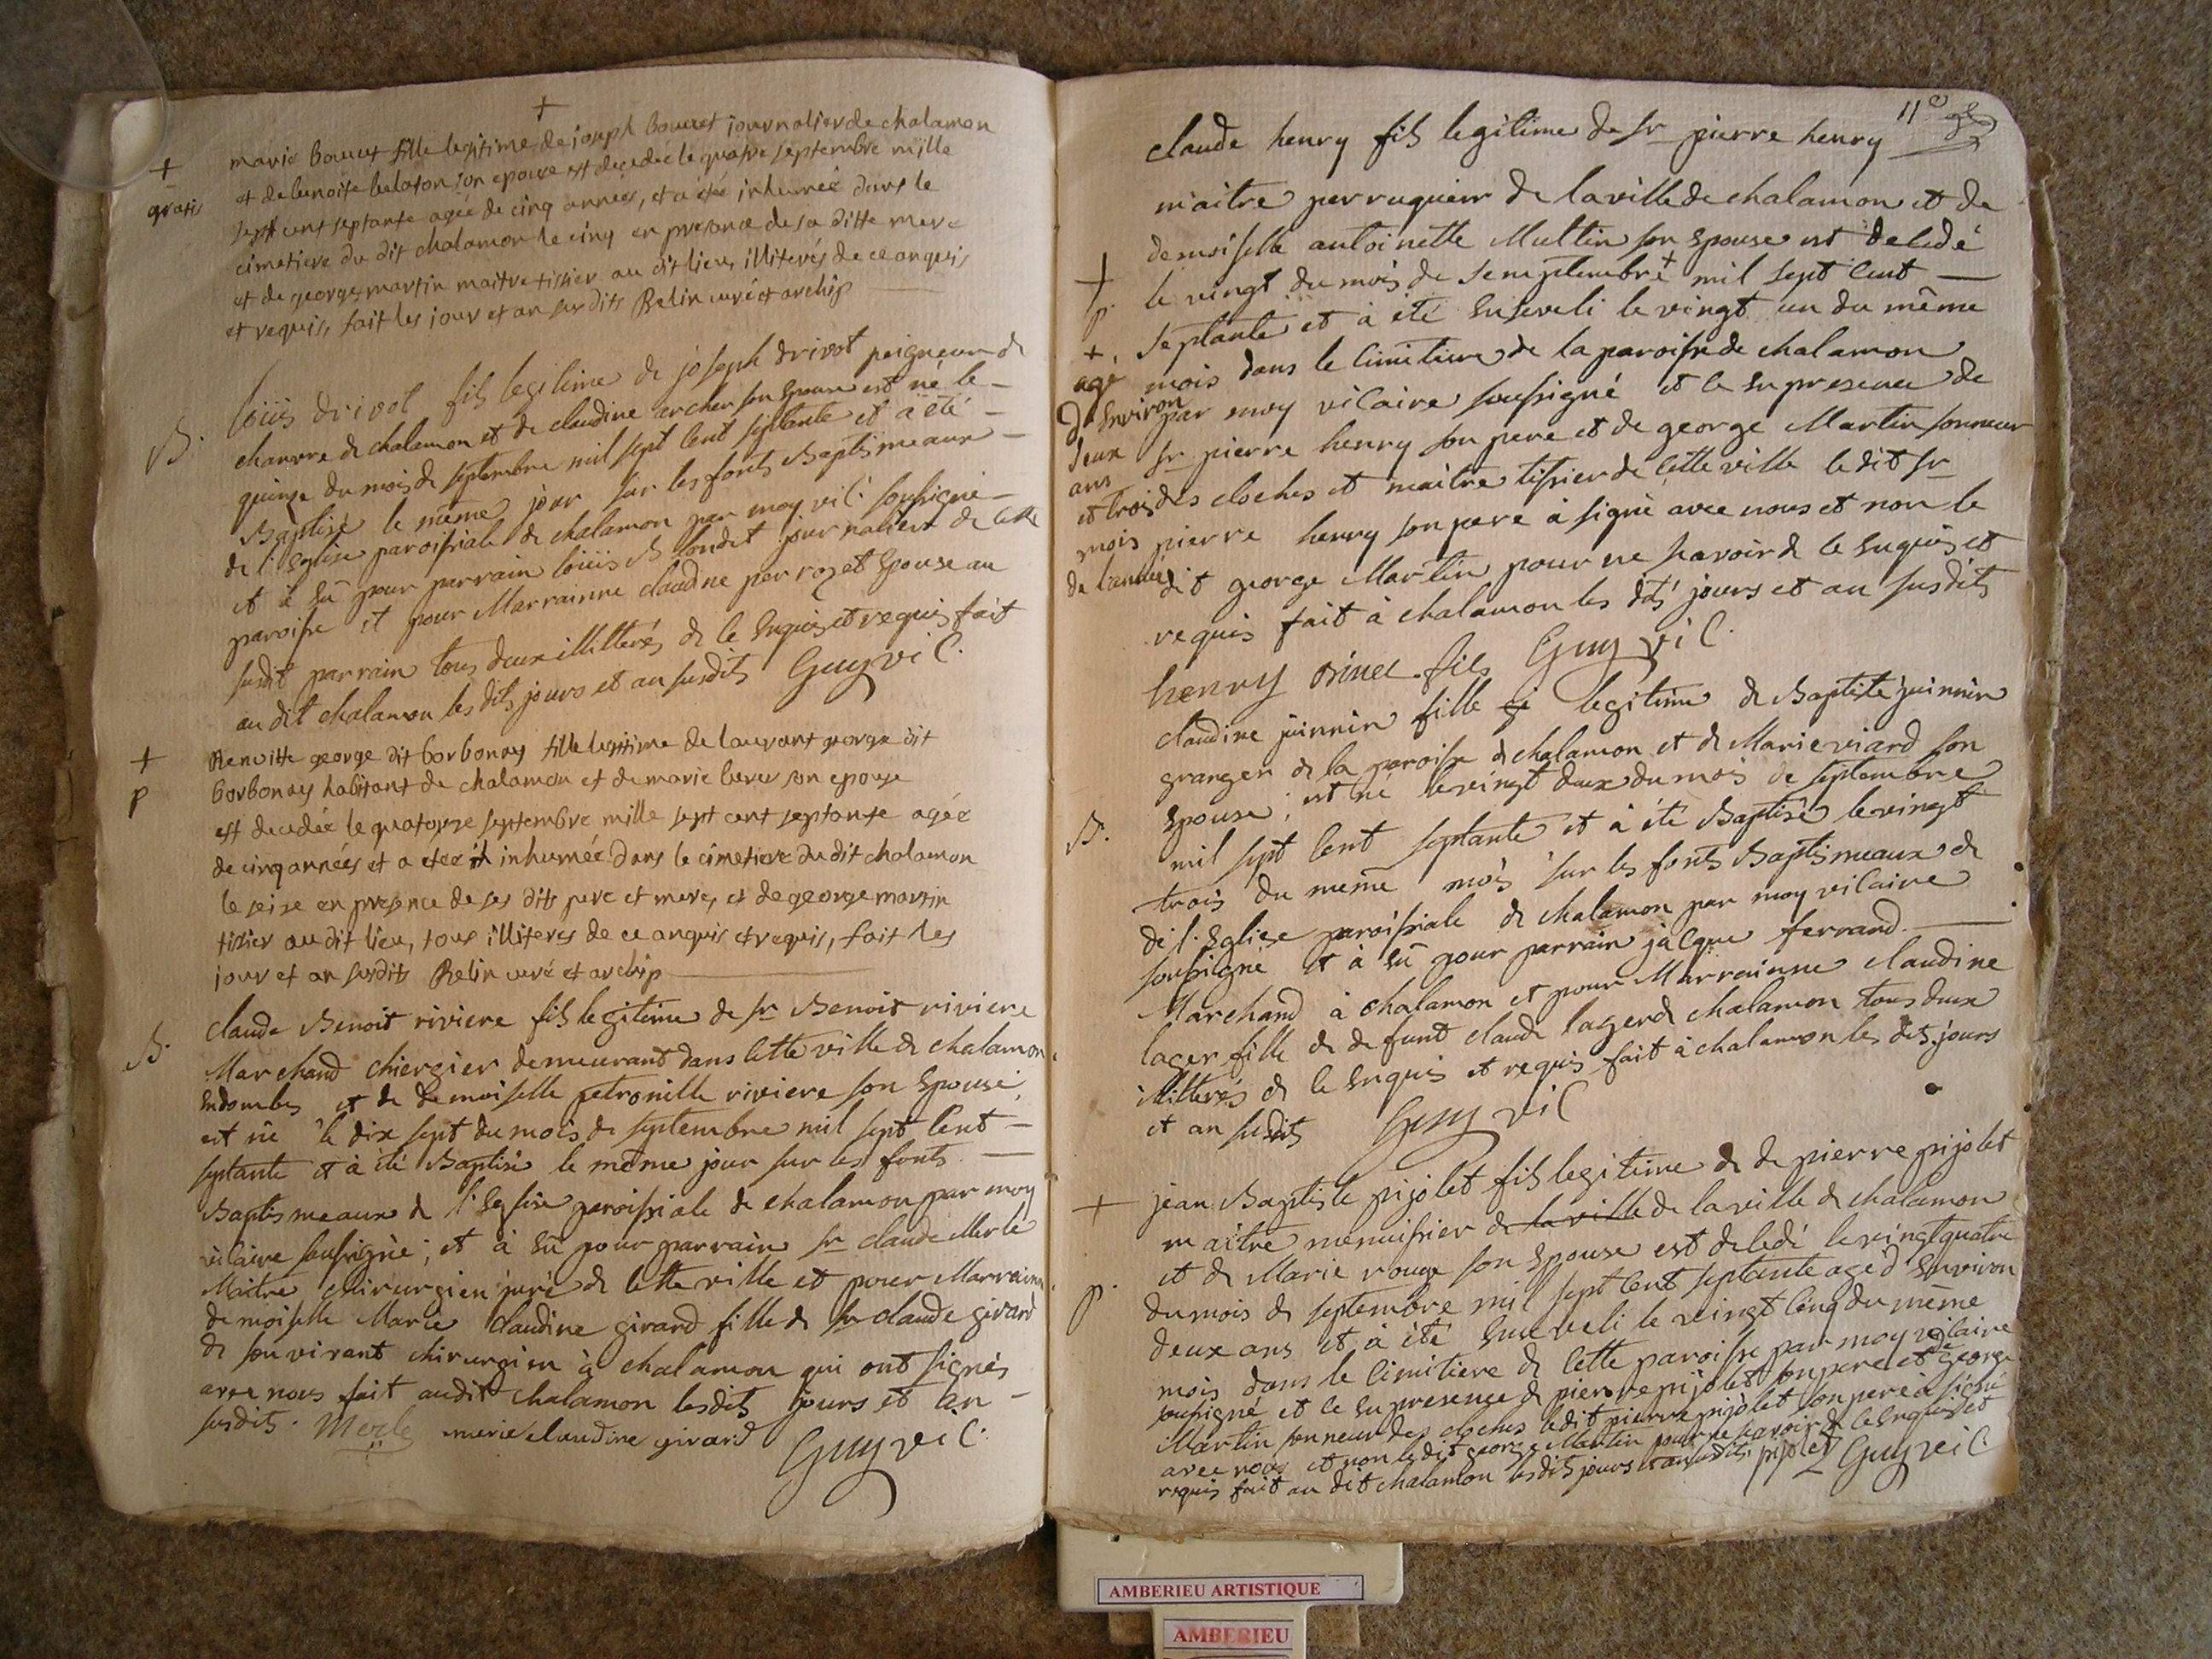 +
+
gratis
marie bouvet fille legitime de joseph bouvet journalier de chalamon
et de benoite belaton son epouse est decedée le quatre septembre mille
sept cent septante agée de cinq années, et a été inhumée dans le
cimetiere du dit chalamon le cinq en presence de sa ditte mere
et de georges martin maitre tissier au dit lieu, illiterés de ce anquis
et requis, fait les jour et an susdits Relin curé et archip
B.
loüis drivot fils legitime de joseph drivot peigneur de
chanvre de chalamon et de claudine archer son Epouse est né le
quinze du mois de septembre mil sept cent septante et à été
Baptisé le même jour sur les fonts Baptismeaux
de l'Eglise paroissiale de chalamon par moy vic. soussigné
et à eû pour parrain loüis Blondet journalier de cette
paroisse et pour Marrainne claudine perrozet Epouse au
susdit parrain tous deux illitterés de ce Enquis et requis fait
au dit chalamon les dits jours et an susdits Guy vic.
+
p
Benoitte george dit borbonay fille legitime de laurant george dit
borbonay habitant de chalamon et de marie son epouse
est decedée le quatorze septembre mille sept cent septante agée
de cinq années et a étée inhumée dans le cimetiere du dit chalamon
le seise en presence de ses dits pere et mere, et de george martin
tissier au dit lieu, tous illiteres de ce anquis et requis, fait les
jour et an susdits Relin curé et archip
B.
claude Benoit riviere fils legitime de sr Benoit riviere
Marchand chiergier demeurant dans cette ville de chalamon
Endombes et de demoiselle petronille riviere son Epouse,
est né le dix sept du mois de septembre mil sept cent
septante et à été Baptisé le même jour sur les fonts
Baptismeaux de l'Eglise paroissiale de chalamon par moy
vicaire soussigné; et à eû pour parrain sr claude Merle
Maitre chirurgien juré de cette ville et pour Marrainne
demoiselle Marie claudine girard fille de sr claude girard
de son vivant chirurgien à chalamon qui ont signés
avec nous fait audit chalamon les dits jours et an
susdits. Merle marie claudine girard
Guy vic.
11e
claude henry fils legitime de sr pierre henry
maitre perruquier de la ville de chalamon et de
demoiselle antoinette Multin son Epouse est decedé
+
p.
le vingt du mois de semptembre + mil sept cent
septante et à été Enseveli le vingt un du même
mois dans le cimetiere de la paroisse de chalamon
par moy vicaire soussigné et ce En presence de
sr pierre henry son pere et de george Martin sonneur
des cloches et maitre tissier de cette ville le dit sr
pierre henry son pere à signé avec nous et non le
dit george Martin pour ne scavoir de ce Enquis et
requis fait à chalamon les dts jours et an susdits
+.
agé
d'Environ
deux
ans
et trois
mois
de l'année
henry fils Guy vic.
B.
claudine juinnin fille legitime de Baptiste juinnin
granger de la paroisse de chalamon et de Marie viard son
Epouse; est né le vingt deux du mois de septembre
mil sept cent septante et à été Baptisé le vingt
trois du même mois sur les fonts Baptismeaux de
de l'Eglise paroissiale de chalamon par moy vicaire
soussigné et à eû pour parrain jacque ferrand
Marchand à chalamon et pour Marrainne claudine
lager fille de defunt claude lager de chalamon tous deux
illitterés de ce Enquis et requis fait à chalamon les dts jours
et an susdits Guy vic
+
p.
jean Baptiste pijolet fils legitime de de pierre pijolet
maitre menuissier de la ville de la ville de chalamon
et de Marie rouge son Epouse est decedé le vingt quatre
du mois de septembre mil sept cent septante agé d'Environ
deux ans et à été Enseveli le vingt cinq du même
mois dans le cimitiere de cette paroisse par moy vicaire
soussigné et ce En presence de pierre pijolet son pere et de george
Martin sonneur des cloches le dit pierre pijolet son pere à signé
avec nous et non le dit george Martin pour ne scavoir de ce Enquis et
requis fait au dit chalamon les dits jours et an susdits pijolet Guy vic.
AMBERIEU ARTISTIQUE
AMBERIEU